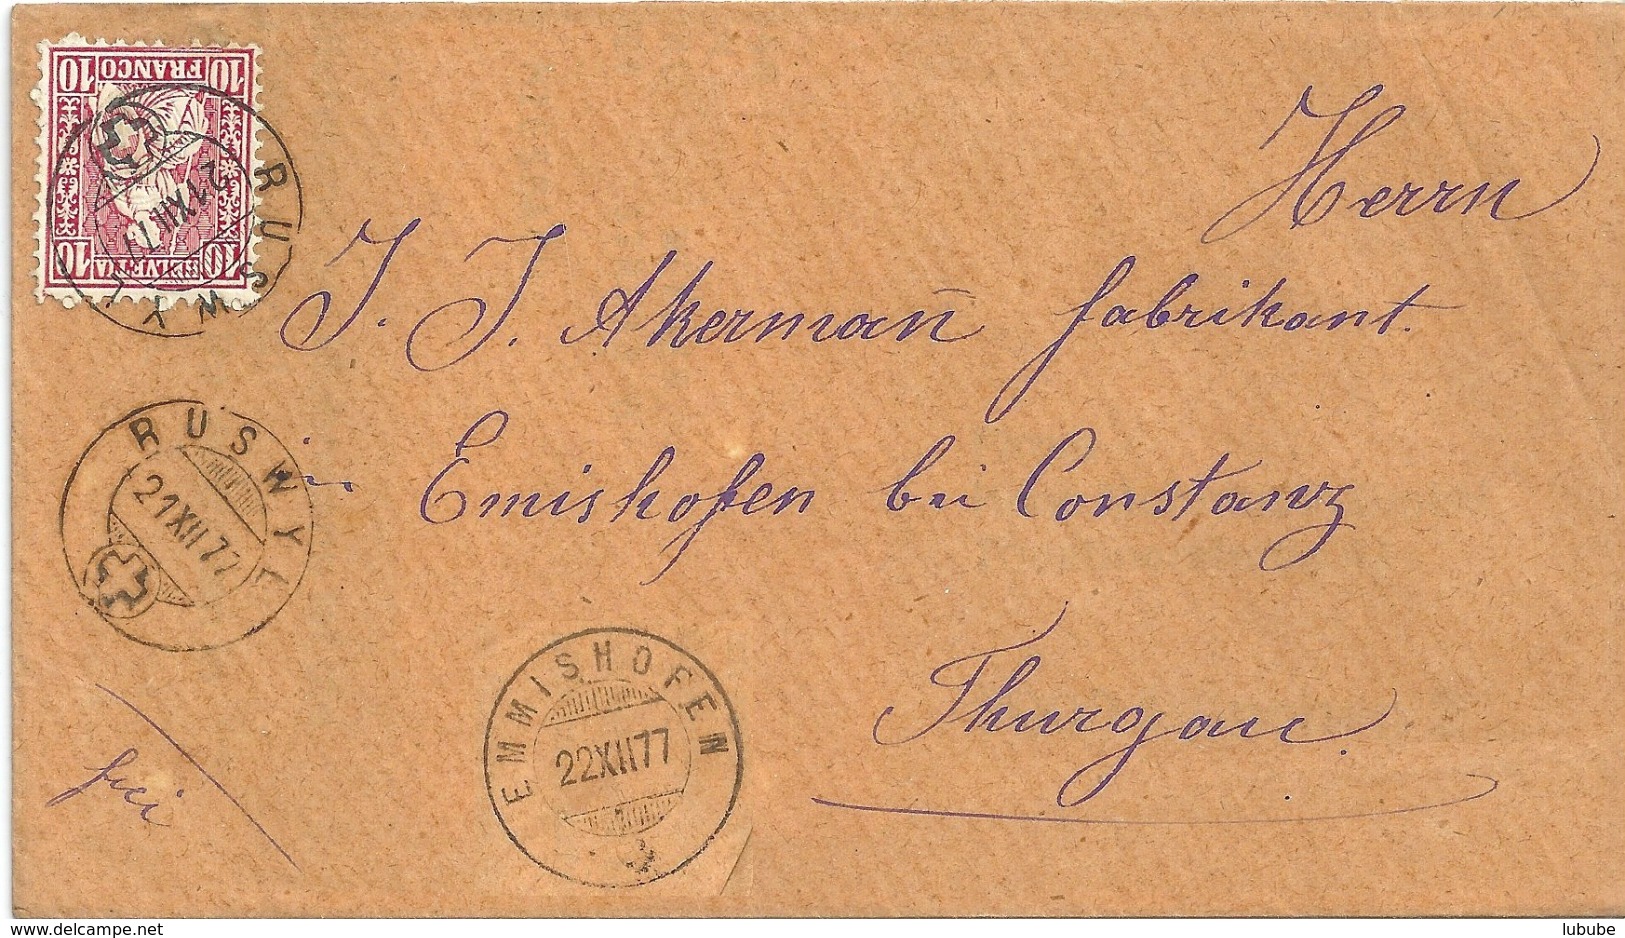 10 FRANCO 10
10 HELVETIA 10
RUSWYL
21 XII 77
Herrn
J. J. Akerman̄ fabrikant.
in Emishofen bei Constanz
Thurgau.
RUSWYL
21 XII 77
EMMISHOFEN
22 XII 77
frei
delcampe.net
lubube